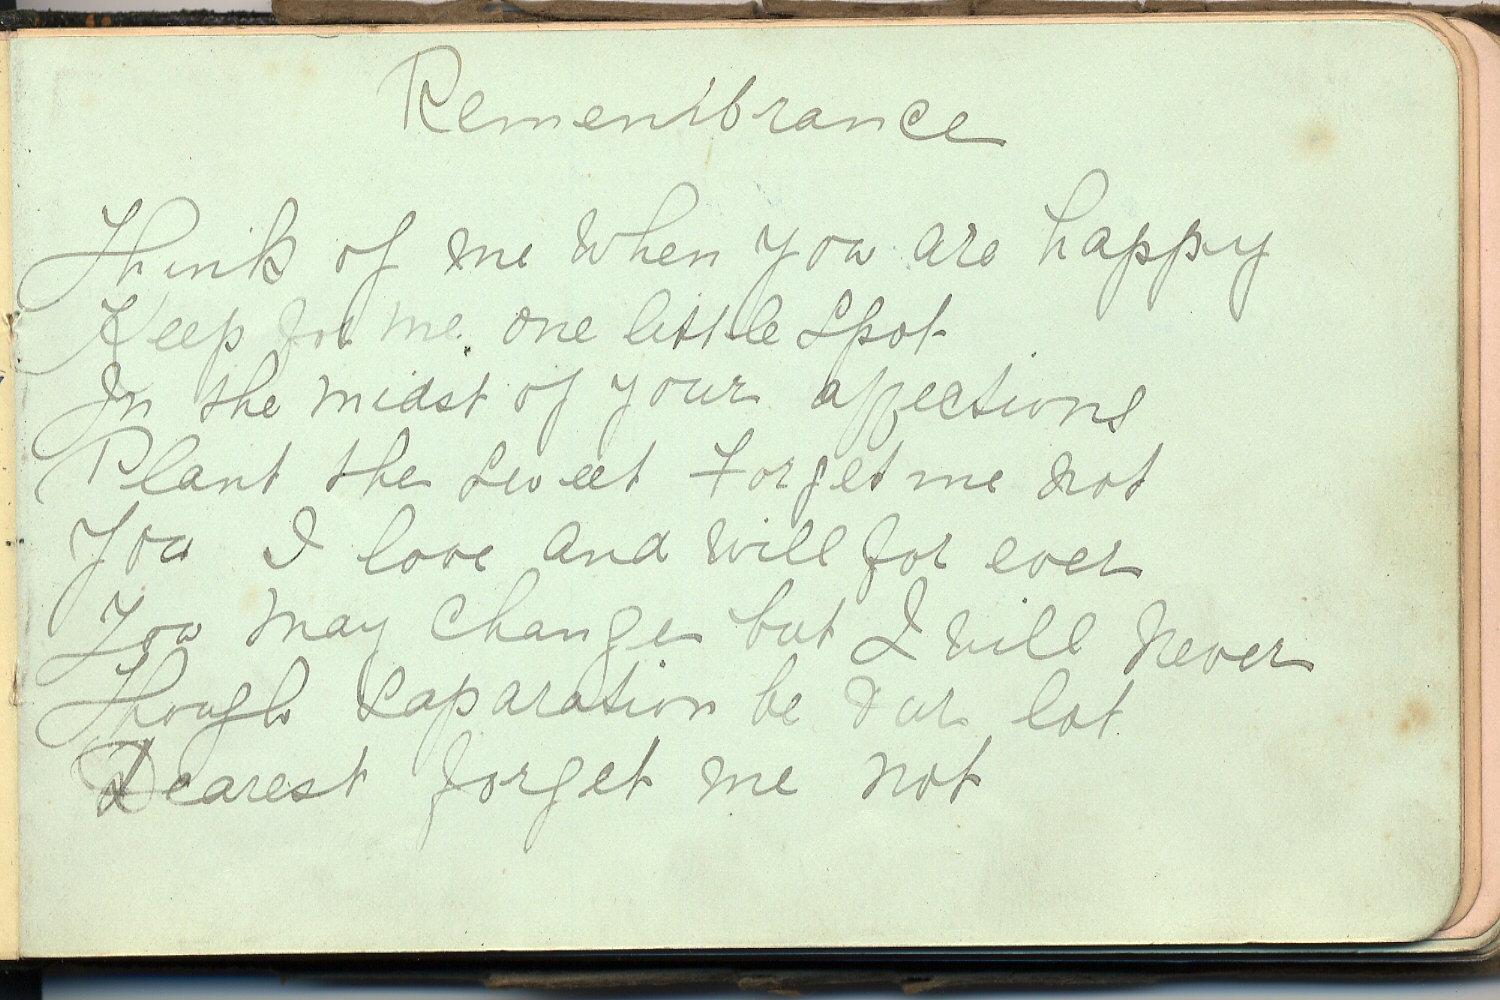 Remembrance
Think of me when you are happy
Keep for me one little spot
In the midst of your affections
Plant the sweet Forget me not
You I love and will for ever
You may change but I will never
Though Saparation be our lot
Dearest forget me not